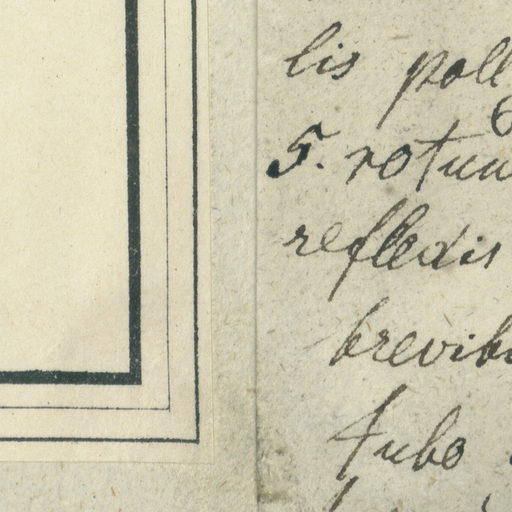 lis poll
5. rotun
reflexis
brevibu
Tubo